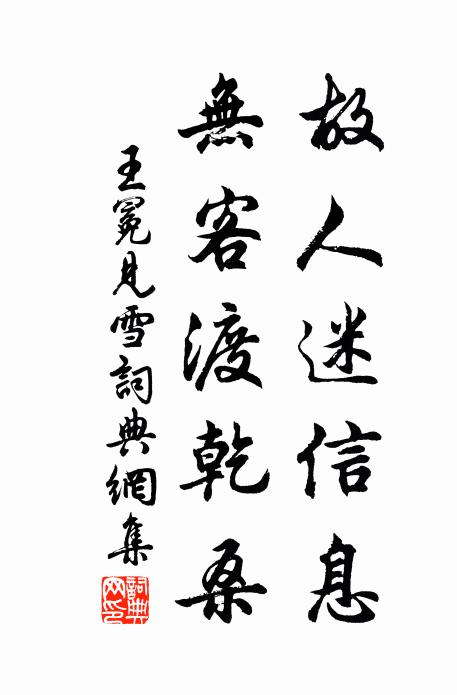 故人迷信息
無客渡乾桑
王冕見雪詞典網集
詞典
網印